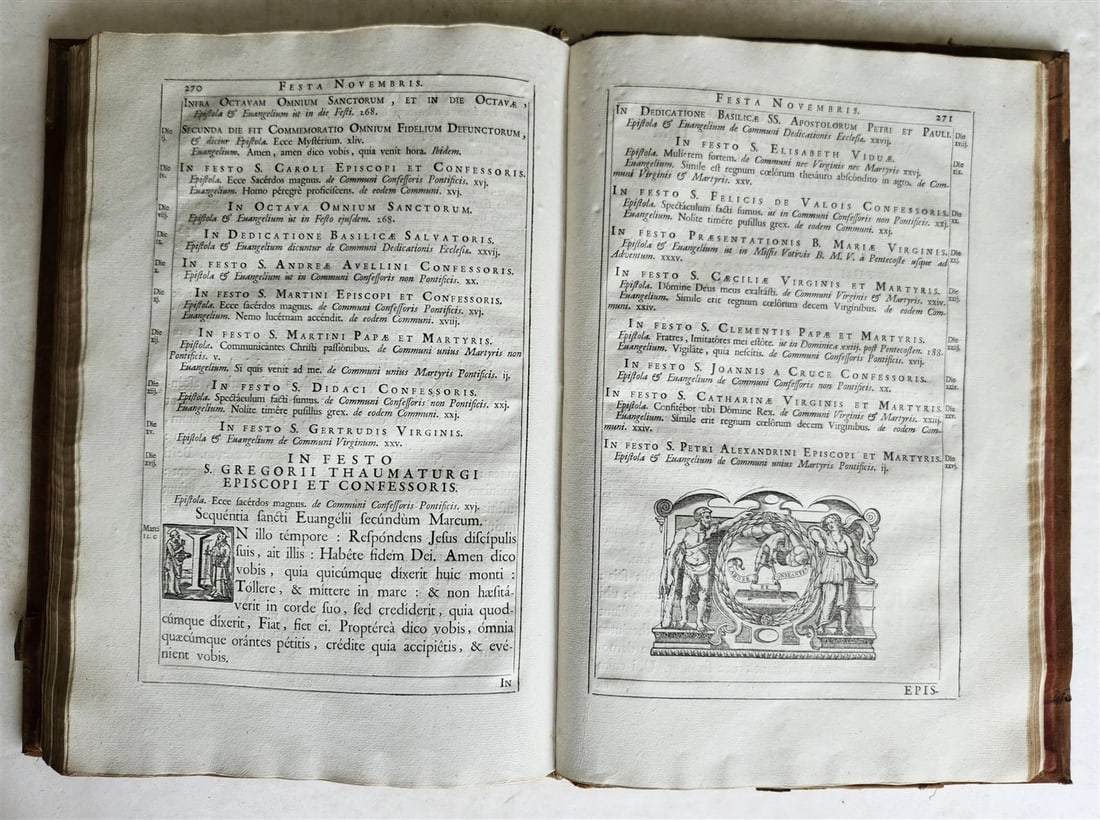 270 FESTA NOVEMBRIS.
INFRA OCTAVAM OMNIUM SANCTORUM, ET IN DIE OCTAVÆ,
Epistola & Euangelium ut in die Festi. 268.
Die ij. SECUNDA DIE FIT COMMEMORATIO OMNIUM FIDELIUM DEFUNCTORUM,
& dicitur Epistola. Ecce Mystérium. xliv.
Euangelium. Amen, amen dico vobis, quia venit hora. Ibidem.
Die iv. IN FESTO S. CAROLI EPISCOPI ET CONFESSORIS.
Epistola. Ecce Sacérdos magnus. de Communi Confessoris Pontificis. xvj.
Euangelium. Homo péregrè proficiscens. de eodem Communi. xvj.
Die viij. IN OCTAVA OMNIUM SANCTORUM.
Epistola & Euangelium ut in Festo ejusdem. 268.
Die ix. IN DEDICATIONE BASILICÆ SALVATORIS.
Epistola & Euangelium dicuntur de Communi Dedicationis Ecclesiæ. xxvij.
Die x. IN FESTO S. ANDREÆ AVELLINI CONFESSORIS.
Epistola & Euangelium ut in Communi Confessoris non Pontificis. xx.
Die xj. IN FESTO S. MARTINI EPISCOPI ET CONFESSORIS.
Epistola. Ecce sacérdos magnus. de Communi Confessoris Pontificis. xvj.
Euangelium. Nemo lucérnam accéndit. de eodem Communi. xviij.
Die xij. IN FESTO S. MARTINI PAPÆ ET MARTYRIS.
Epistola. Communicántes Christi passiónibus. de Communi unius Martyris non
Pontificis. v.
Euangelium. Si quis venit ad me. de Communi unius Martyris Pontificis. ij.
Die xiij. IN FESTO S. DIDACI CONFESSORIS.
Epistola. Spectáculum facti sumus. de Communi Confessoris non Pontificis. xxj.
Euangelium. Nolíte timére pusíllus grex. de eodem Communi. xxj.
Die xv. IN FESTO S. GERTRUDIS VIRGINIS.
Epistola & Euangelium de Communi Virginum. xxv.
Die xvij. IN FESTO
S. GREGORII THAUMATURGI
EPISCOPI ET CONFESSORIS.
Epistola. Ecce sacérdos magnus. de Communi Confessoris Pontificis. xvj.
Sequéntia sancti Euangelii secúndum Marcum.
Marci
IN illo témpore : Respóndens Jesus discípulis
suis, ait illis : Habéte fidem Dei. Amen dico
vobis, quia quicúmque díxerit huic monti :
Tóllere, & míttere in mare : & non hæsitá-
verit in corde suo, sed credíderit, quia quod-
cúmque díxerit, Fiat, fiet ei. Proptéreà dico vobis, ómnia
quæcúmque orántes pétitis, crédite quia accipiétis, & evé-
nient vobis.
IN
FESTA NOVEMBRIS. 271
IN DEDICATIONE BASILICÆ SS. APOSTOLORUM PETRI ET PAULI. Die xviij.
Epistola & Euangelium de Communi Dedicationis Ecclesiæ. xxvij.
IN FESTO S. ELISABETH VIDUÆ. Die xix.
Epistola. Mulíerem fortem. de Communi nec Virginis nec Martyris xxvj.
Euangelium. Símile est regnum cœlórum thesáuro abscóndito in agro. de Com-
muni Virginis & Martyris. xxv.
IN FESTO S. FELICIS DE VALOIS CONFESSORIS. Die xx.
Epistola. Spectáculum facti sumus. ut in Communi Confessoris non Pontificis. xxj.
Euangelium. Nolíte timére pusíllus grex. de eodem Communi. xxj.
IN FESTO PRÆSENTATIONIS B. MARIÆ VIRGINIS. Die xxj.
Epistola & Euangelium ut in Missis Votivis B. M. V. à Pentecoste usque ad
Adventum. xxxv.
IN FESTO S. CÆCILIÆ VIRGINIS ET MARTYRIS. Die xxij.
Epistola. Dómine Deus meus exaltásti. de Communi Virginis & Martyris. xxiv.
Euangelium. Símile erit regnum cœlórum decem Virgínibus. de eodem Com-
muni. xxiv.
IN FESTO S. CLEMENTIS PAPÆ ET MARTYRIS. Die xxiij.
Epistola. Fratres, Imitatóres mei estóte. ut in Dominica xxiij. post Pentecosten. 188.
Euangelium. Vigiláte, quia nescítis. de Communi Confessoris Pontificis. xvij.
IN FESTO S. JOANNIS A CRUCE CONFESSORIS. Die xxiv.
Epistola & Euangelium de Communi Confessoris non Pontificis. xx.
IN FESTO S. CATHARINÆ VIRGINIS ET MARTYRIS. Die xxv.
Epistola. Confitébor tibi Dómine Rex. de Communi Virginis & Martyris. xxiij.
Euangelium. Símile erit regnum cœlórum decem Virgínibus. de eodem Com-
muni. xxiv.
IN FESTO S. PETRI ALEXANDRINI EPISCOPI ET MARTYRIS. Die xxvj.
Epistola & Euangelium de Communi unius Martyris Pontificis. ij.
EPIS-